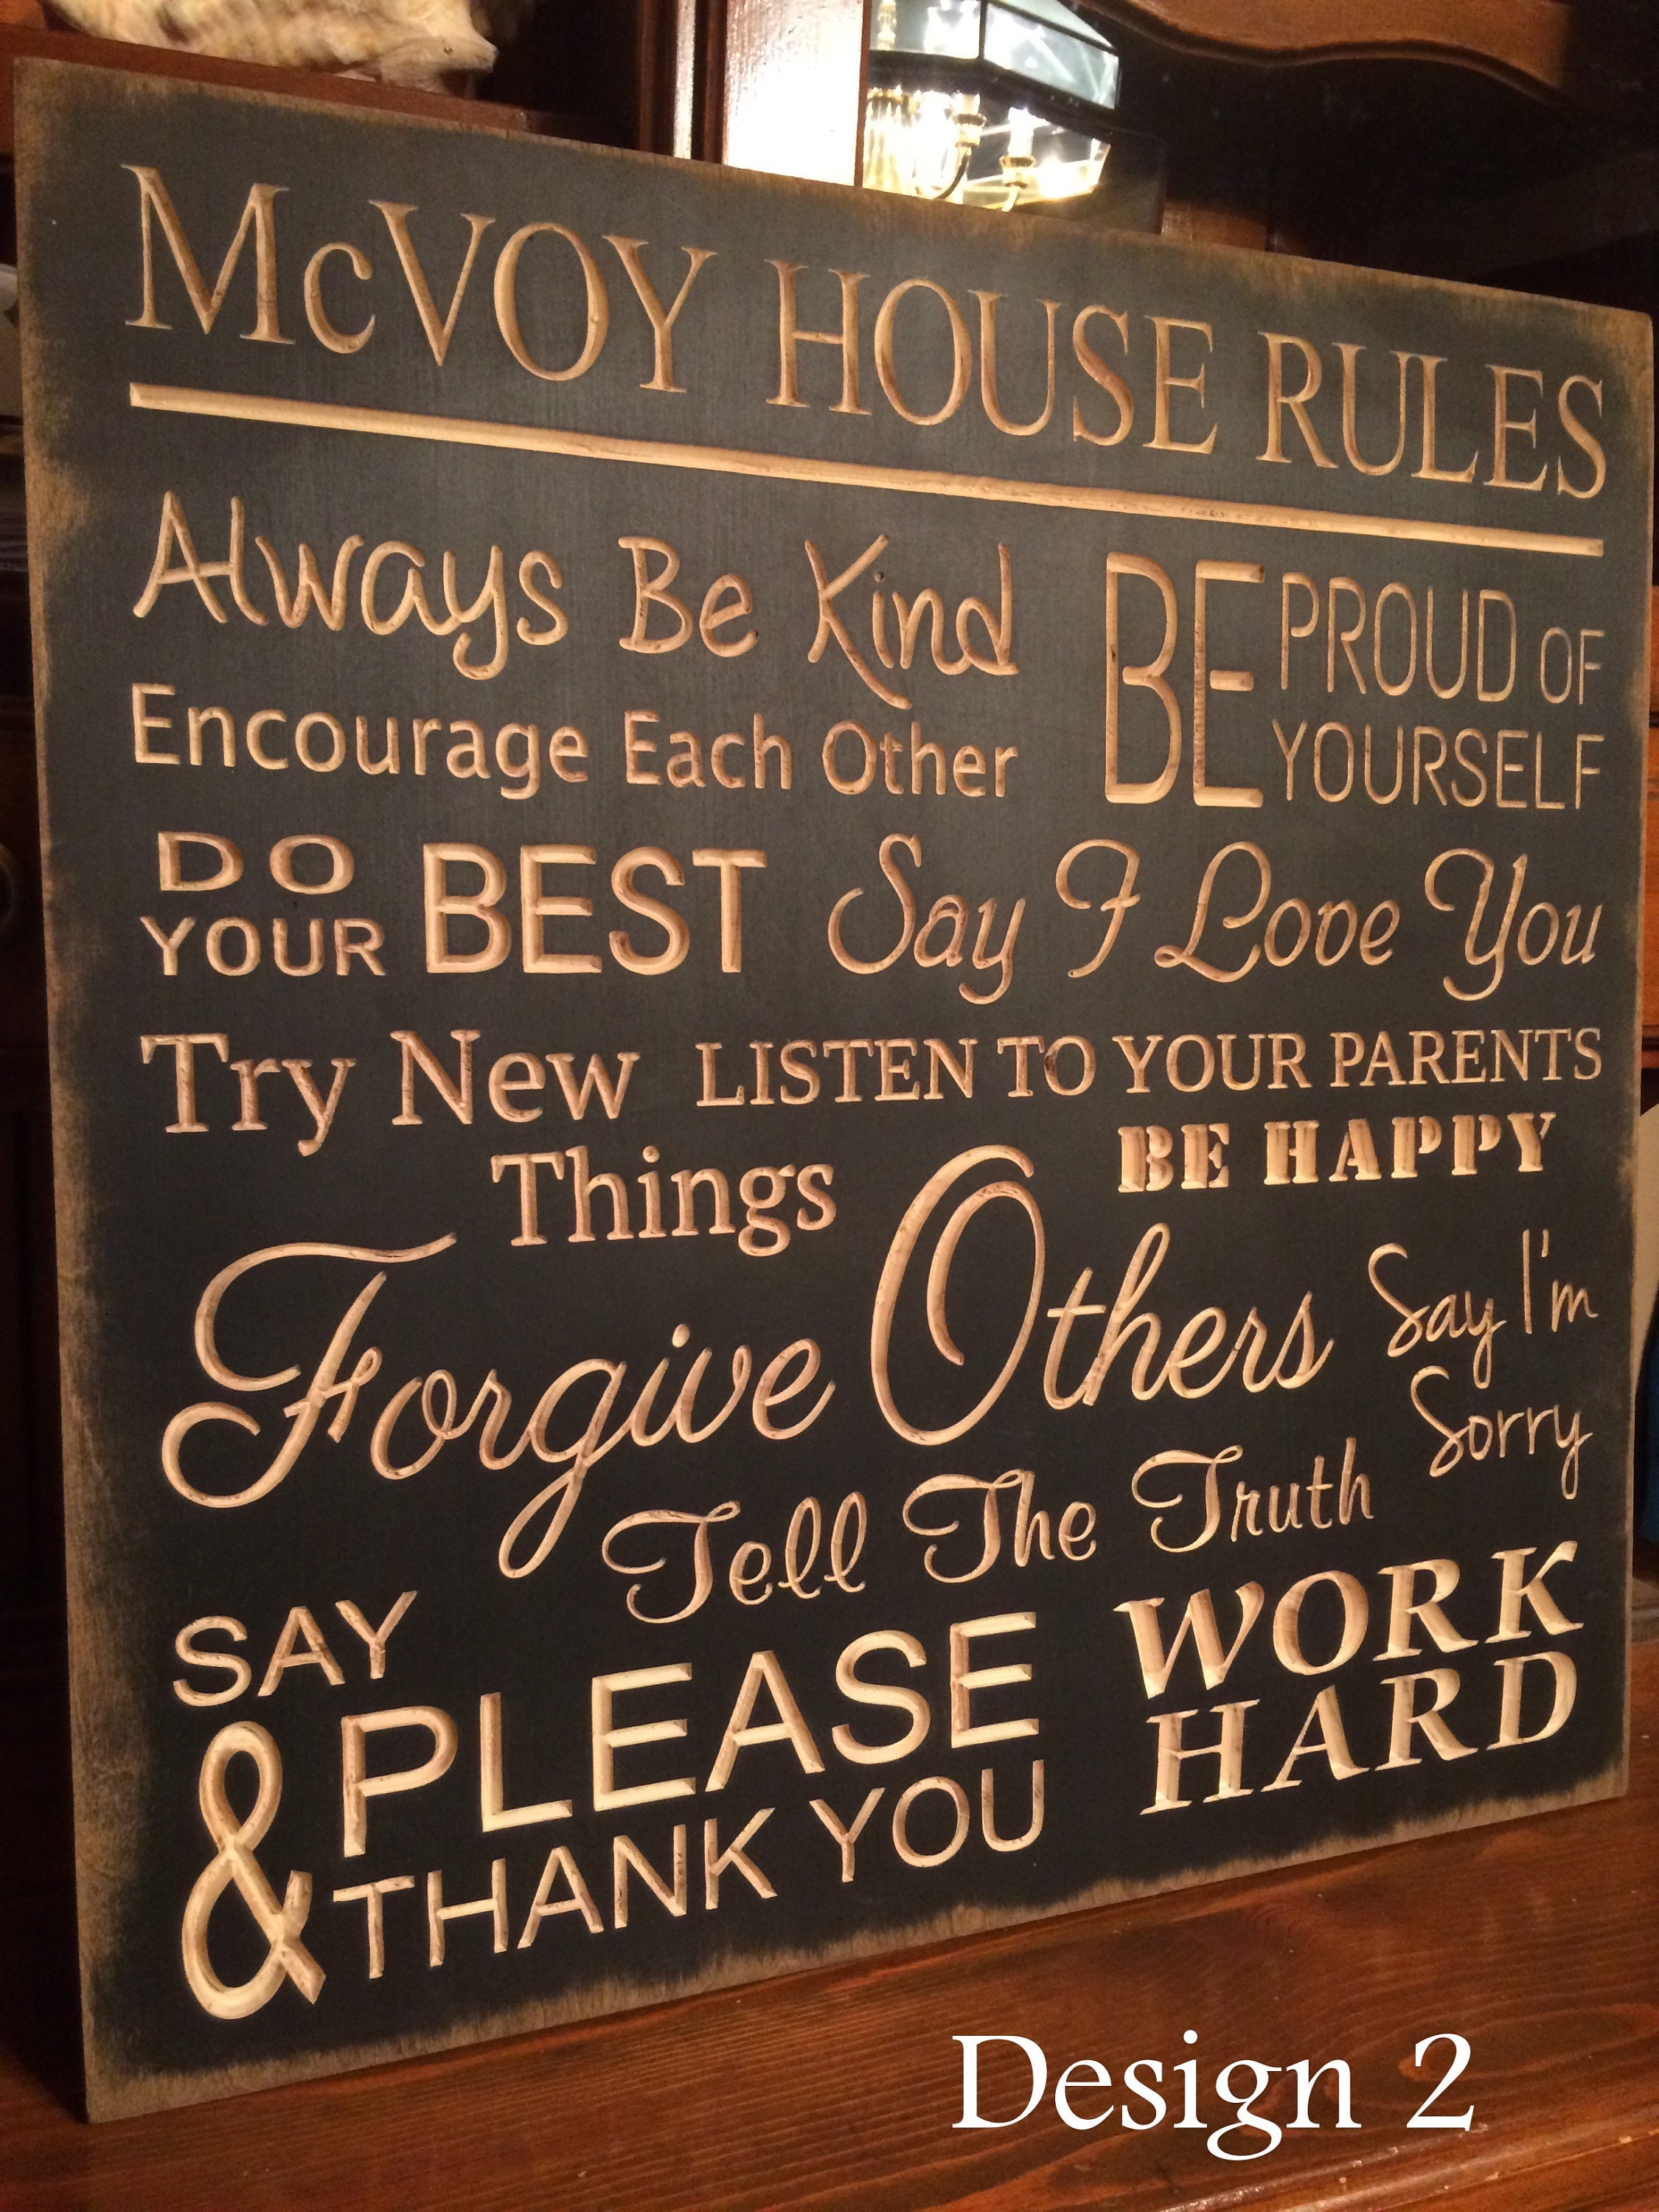 McVOY HOUSE RULES
Always Be Kind
Encourage Each Other
BE PROUD OF
YOURSELF
DO
YOUR BEST
Say I Love You
Try New
Things
LISTEN TO YOUR PARENTS
BE HAPPY
Forgive Others
Say I'm
Sorry
Tell The Truth
SAY
PLEASE
& THANK YOU
WORK
HARD
Design 2